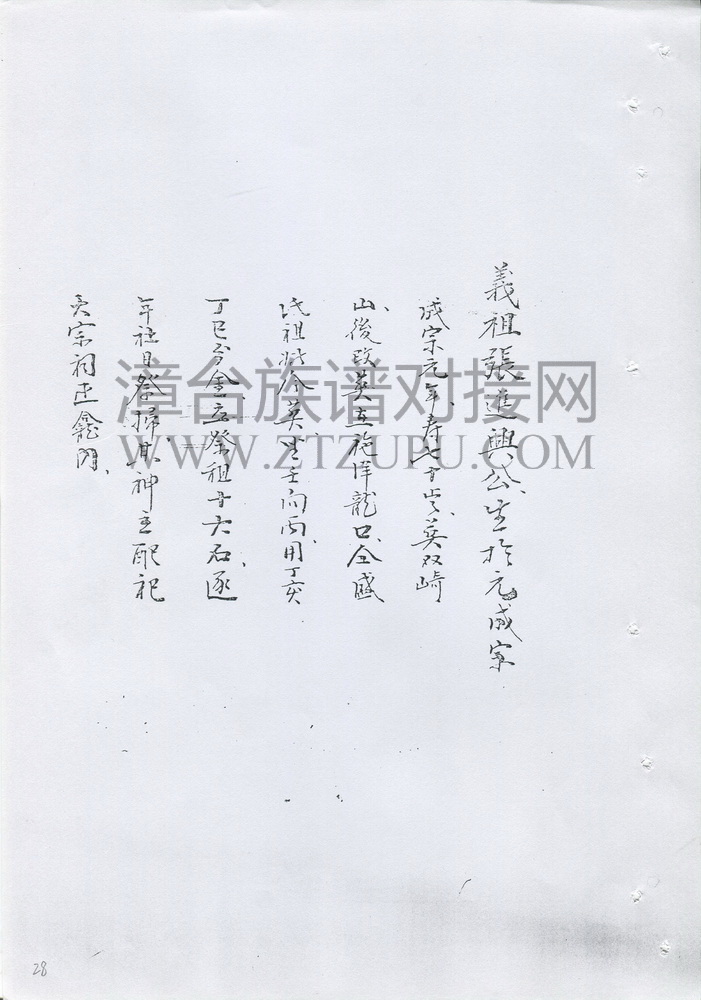 義祖張進興公、生於元成宗
成宗元年、寿七十歲、葬双崎
山、後改葬在施洋龍口、仝盛
氏祖妣仝葬坐壬向丙、用丁亥
丁巳分金、立祭租廿大石、逐
年社日祭掃、其神主配祀
於宗祠正龕內、
漳台族谱对接网
WWW.ZTZUPU.COM
28